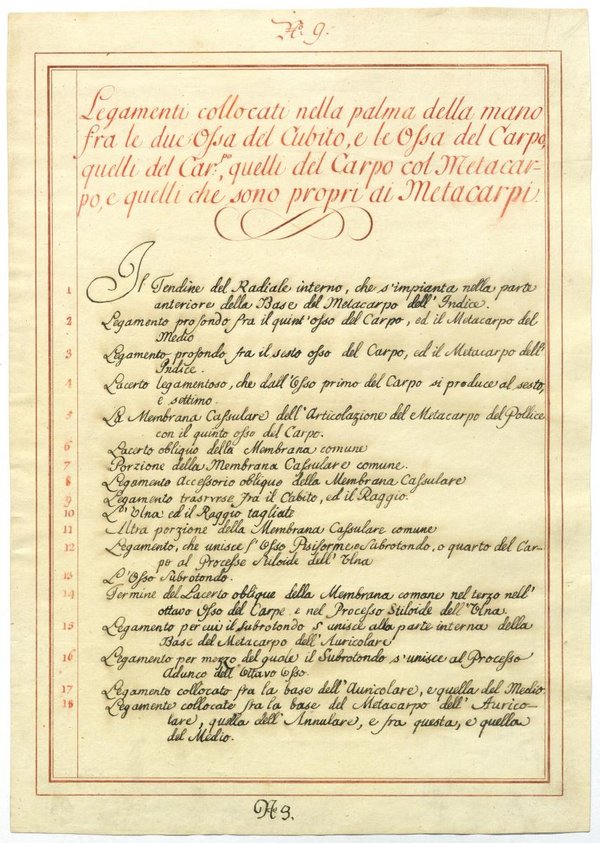 N.º 9.
Legamenti collocati nella palma della mano
fra le due Ossa del Cubito, e le Ossa del Carpo,
quelli del Car.po, quelli del Carpo col Metacar-
po, e quelli che sono propri di Metacarpi.
1 Il Tendine del Radiale interno, che s'impianta nella parte
anteriore della Base del Metacarpo dell'Indice.
2 Legamento profondo fra il quint'osso del Carpo, ed il Metacarpo del
Medio
3 Legamento profondo fra il sesto osso del Carpo, ed il Metacarpo dell'
Indice.
4 Lacerto legamentoso, che dall'Osso primo del Carpo si produce al sesto,
e settimo.
5 La Membrana Cassulare dell'Articolazione del Metacarpo del Pollice
con il quinto osso del Carpo.
6 Lacerto obliquo della Membrana comune
7 Porzione della Membrana Cassulare comune.
8 Legamento Accessorio obliquo della Membrana Cassulare
9 Legamento trasrvrse fra il Cubito, ed il Raggio.
10 L'Vlna ed il Raggio tagliate
11 Altra porzione della Membrana Cassulare comune
12 Legamento, che unisce l'Osso Pisiforme e Subrotondo, o quarto del Car-
po al Processe Stiloide dell'Vlna
13 L'Osso Subrotondo.
14 Termine del Lacerto oblique della Membrana comune nel terzo nell'
ottavo Osso del Carpe, e nel Processo Stiloide dell'Vlna.
15 Legamento per cui il subrotondo s'unisce alla parte interna della
Base del Metacarpo dell'Auricolare
16 Legamento per mezzo del quale il Subrotondo s'unisce al Processo
Adunco dell'Ottavo Osso.
17 Legamento collocato fra la base dell'Auricolare, e quella del Medio.
18 Legamente collocate fra la base del Metacarpo dell'Aurico-
lare, quella dell'Annulare, e fra questa, e quella
del Medio.
No 9.